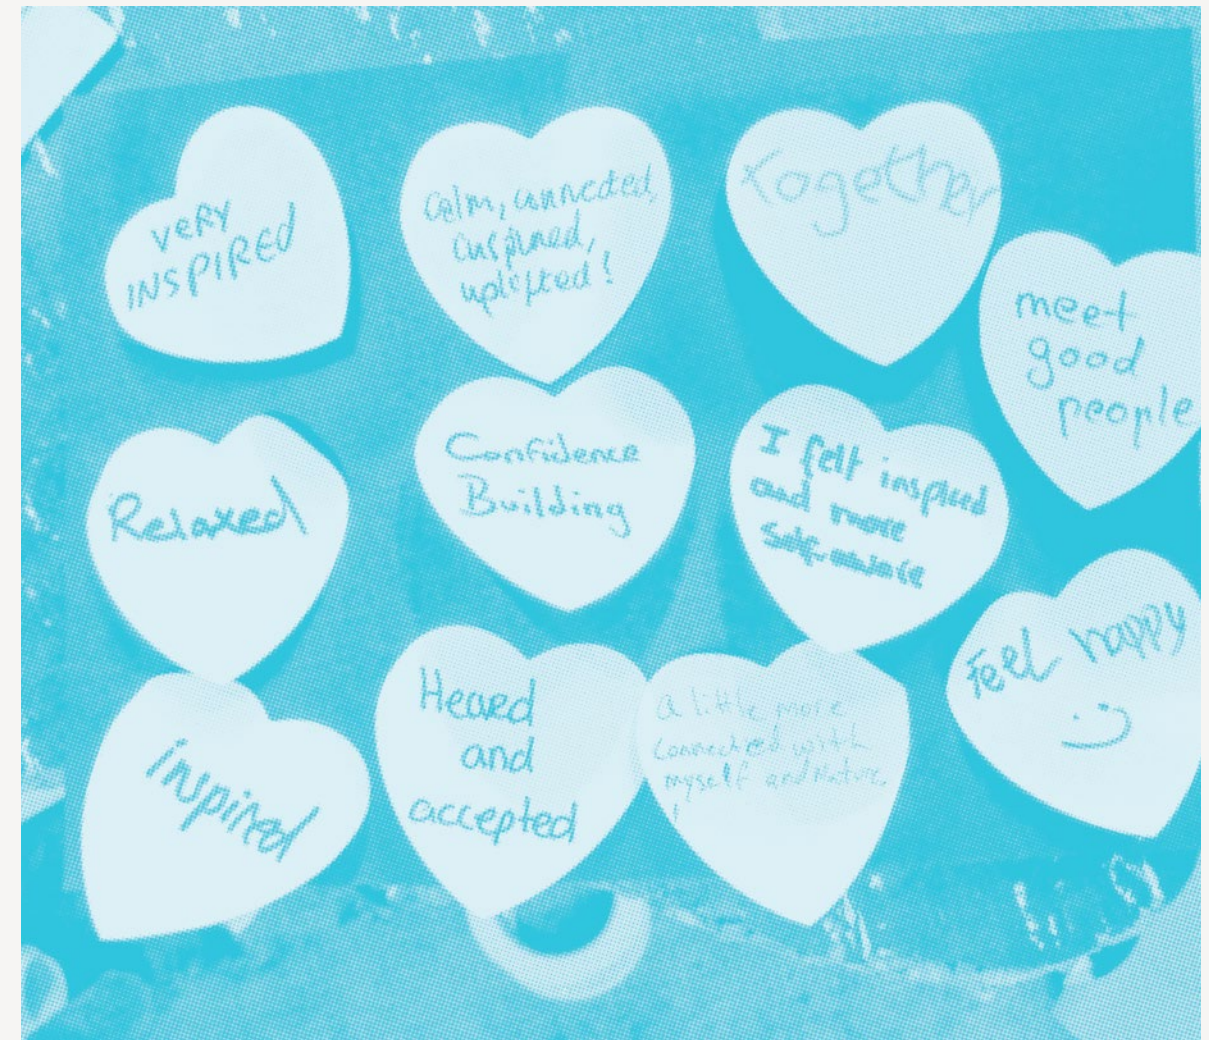 very
INSPIRED
Calm, connected,
inspired,
uplifted!
Together
meet
good
people
Relaxed
Confidence
Building
I felt inspired
and more
Self-aware
feel happy
inspired
Heard
and
accepted
a little more
connected with
myself and Nature
!